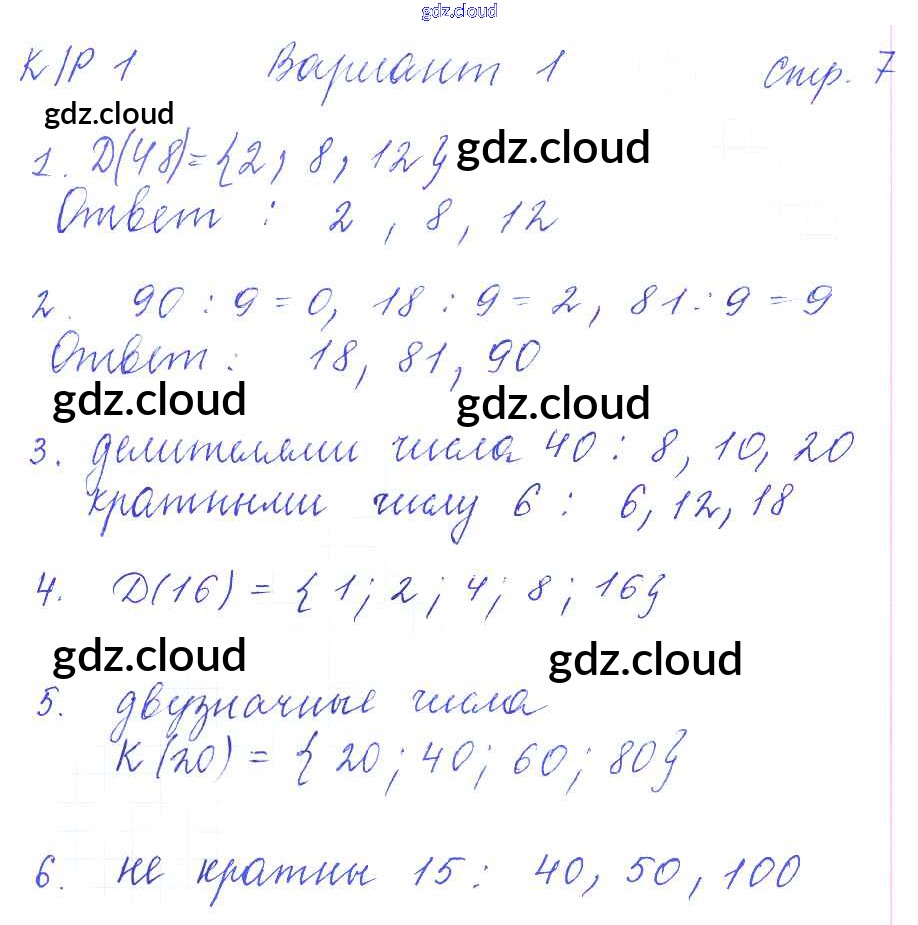 gdz.cloud
К/Р 1 Вариант 1 Стр. 7
gdz.cloud
1. D(48)={2, 8, 12} gdz.cloud
Ответ : 2 , 8, 12
2. 90 : 9 = 0, 18 : 9 = 2, 81 : 9 = 9
Ответ : 18, 81, 90
gdz.cloud gdz.cloud
3. делителями числа 40 : 8, 10, 20
кратными числу 6 : 6, 12, 18
4. D(16) = {1; 2; 4; 8; 16}
gdz.cloud gdz.cloud
5. двузначные числа
К(20) = {20; 40; 60; 80}
6. не кратны 15: 40, 50, 100